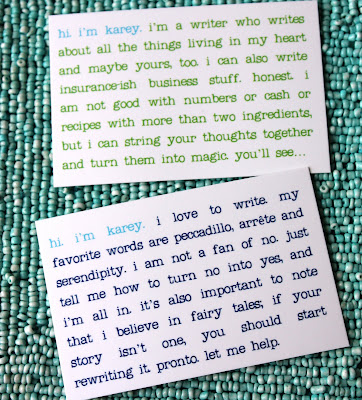 hi. i'm karey. i'm a writer who writes
about all the things living in my heart
and maybe yours, too. i can also write
insurance-ish business stuff. honest. i
am not good with numbers or cash or
recipes with more than two ingredients,
but i can string your thoughts together
and turn them into magic. you'll see...
hi. i'm karey. i love to write. my
favorite words are peccadillo, arrête and
serendipity. i am not a fan of no. just
tell me how to turn no into yes, and
i'm all in. it's also important to note
that i believe in fairy tales; if your
story isn't one, you should start
rewriting it pronto. let me help.